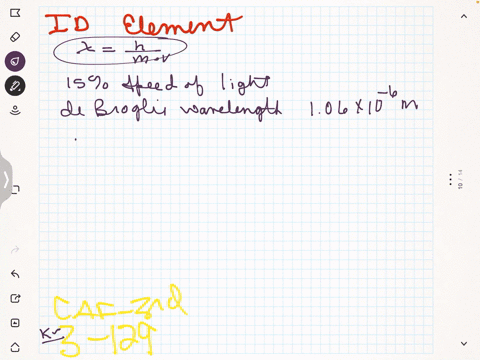 ID Element
λ = h / m·v
15% speed of light
de Broglis wavelength 1.06 × 10⁻⁶ m
10 / 14
CAF-3rd
3-129